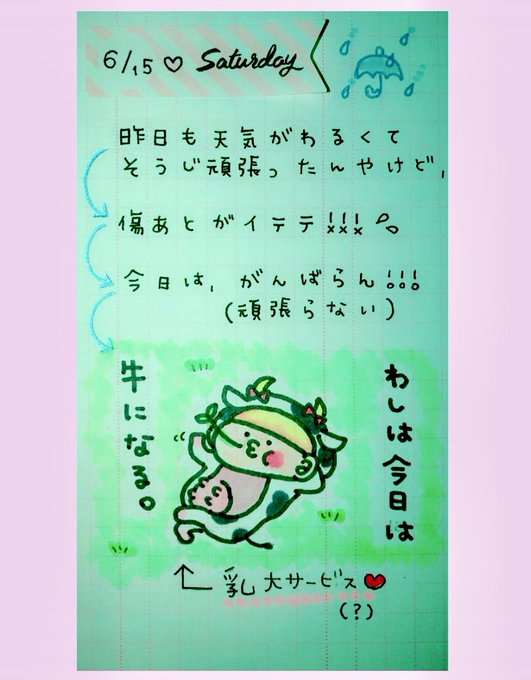 6/15♡ Saturday
昨日も天気がわるくて
そうじ頑張ったんやけど、
傷あとがイテテ!!!
今日は、がんばらん!!!
(頑張らない)
わしは今日は
牛になる。
乳大サービス♥
(?)